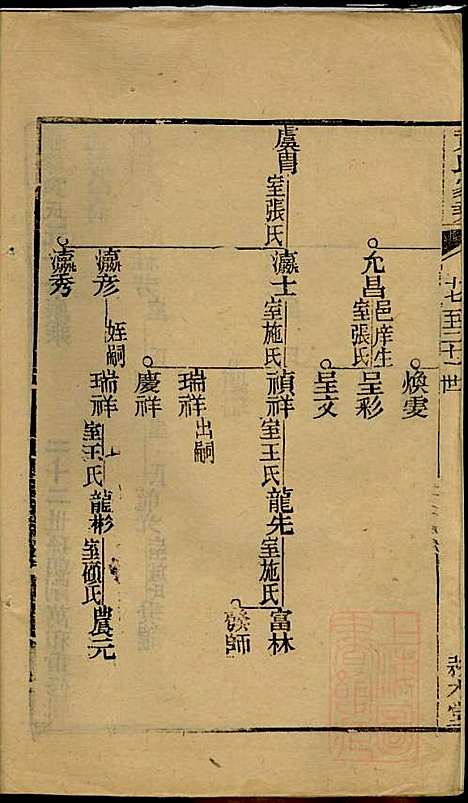 十七至二十一世
虞冑
室張氏
允昌
邑庠生
室張氏
瀛士
室施氏
瀛彦
姪嗣
瀛秀
煥雯
呈彩
呈文
禎祥
室王氏
瑞祥
出嗣
慶祥
瑞祥
室王氏
龍先
室施氏
龍彬
室顧氏
富林
發師
農元